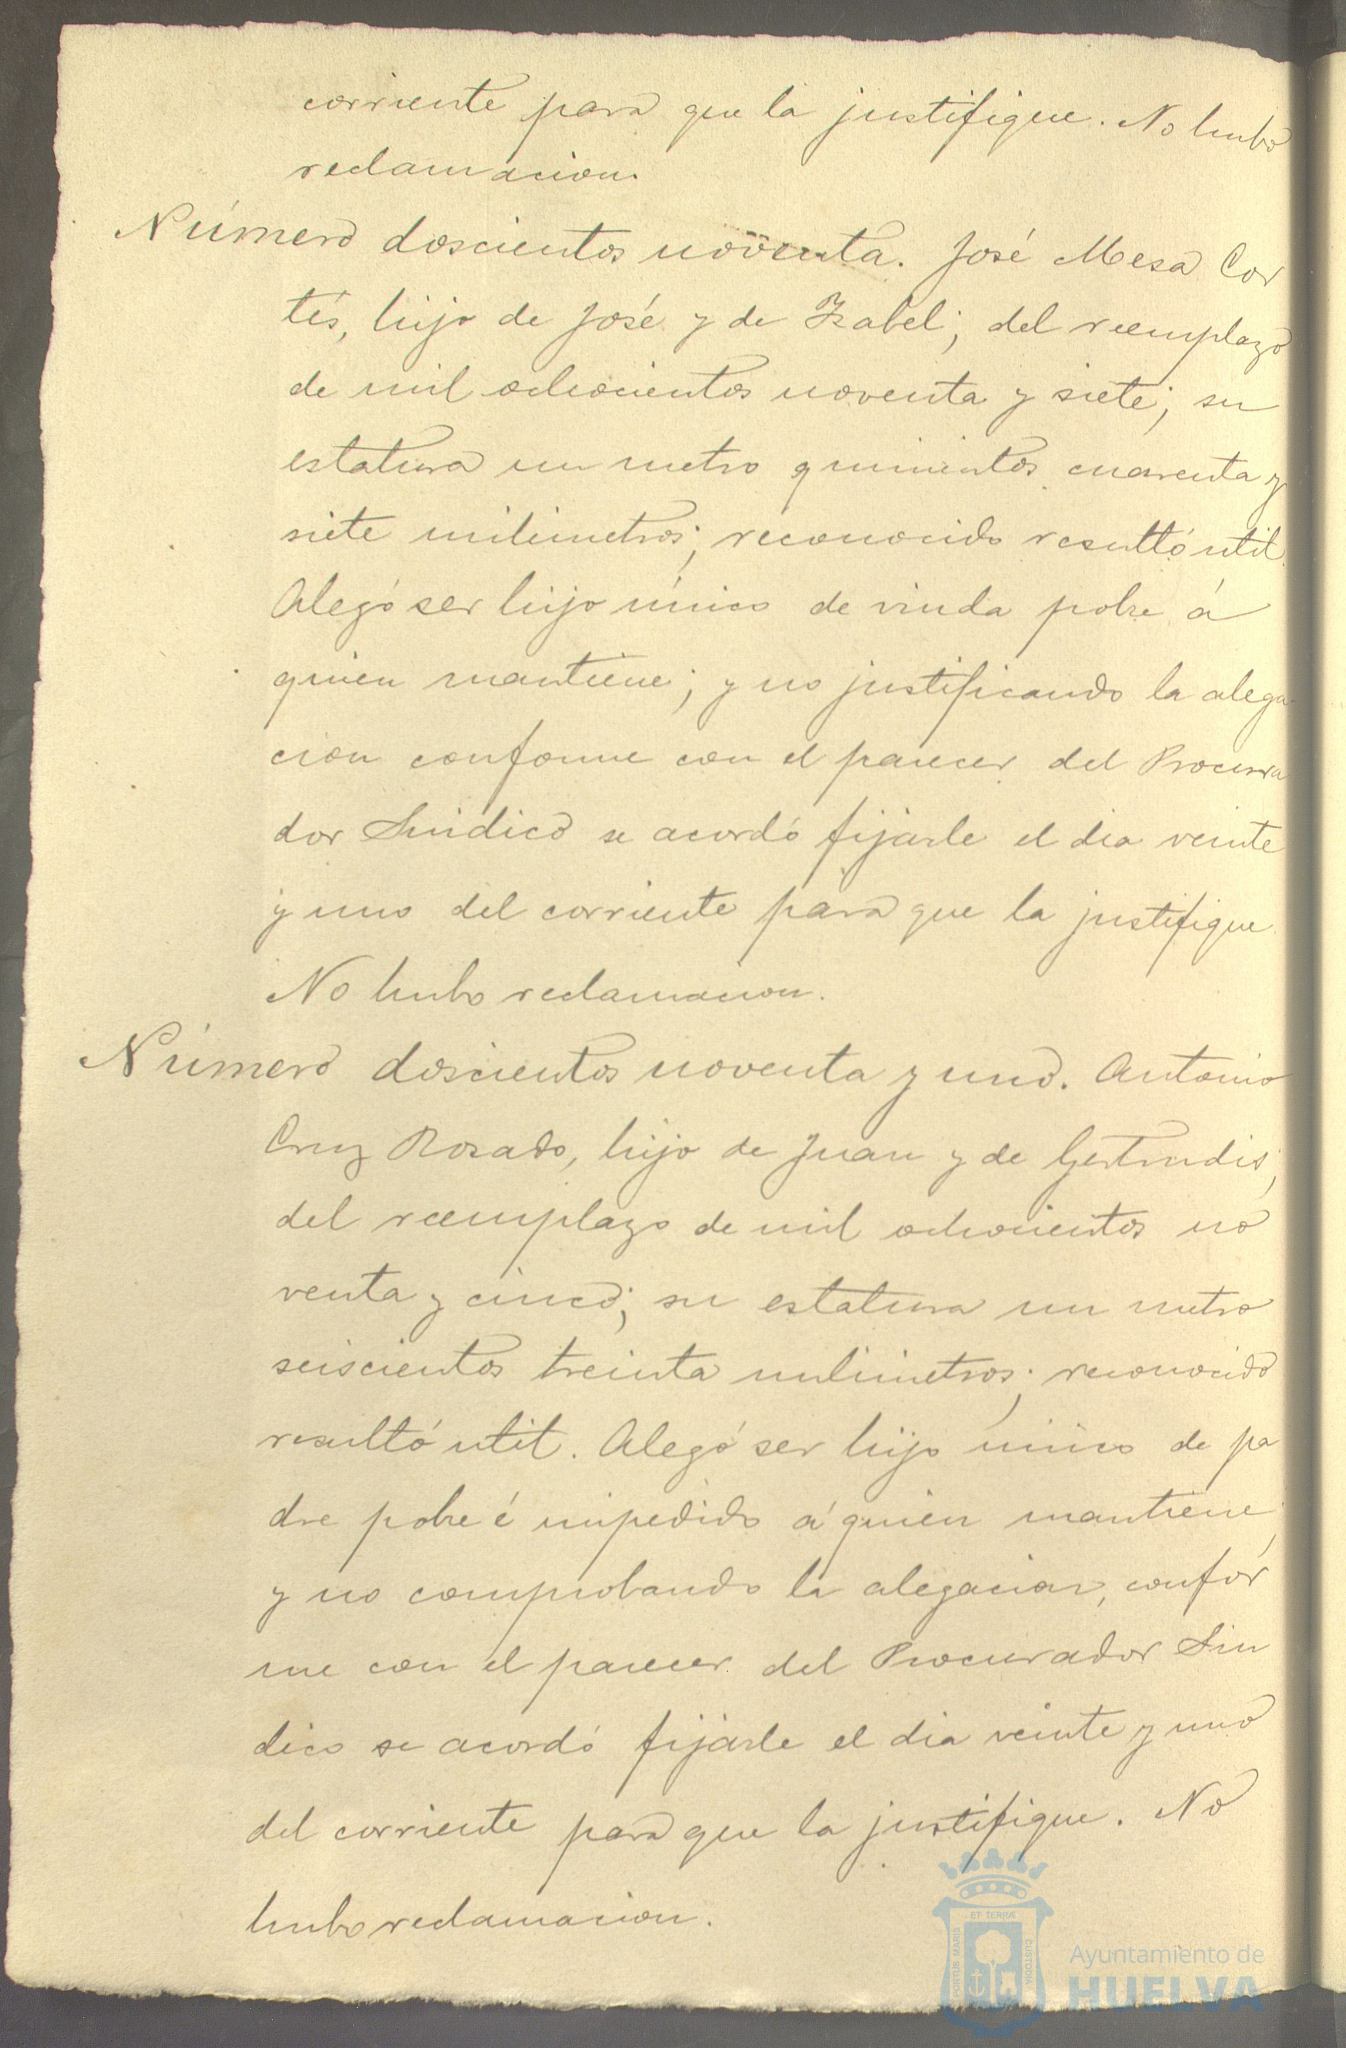 corriente para que la justifique. No hubo
reclamacion.
Número doscientos noventa. José Mesa Cor
tés, hijo de José y de Isabel; del reemplazo
de mil ochocientos noventa y siete; su
estatura un metro quinientos cuarenta y
siete milimetros; reconocido resultó util.
Alegó ser hijo único de viuda pobre á
quien mantiene; y no justificando la alega
cion conforme con el parecer del Procura
dor Sindico se acordó fijarle el dia veinte
y uno del corriente para que la justifique.
No hubo reclamacion.
Número doscientos noventa y uno. Antonio
Cruz Rosado, hijo de Juan y de Gertrudis;
del reemplazo de mil ochocientos no
venta y cinco; su estatura un metro
seiscientos treinta milimetros; reconocido
resultó util. Alegó ser hijo único de pa
dre pobre é impedido á quien mantiene,
y no comprobando la alegacion, confor
me con el parecer del Procurador Sin
dico se acordó fijarle el dia veinte y uno
del corriente para que la justifique. No
hubo reclamacion.
ET TERRÆ
PORTUS MARIS
CUSTODIA
Ayuntamiento de
HUELVA